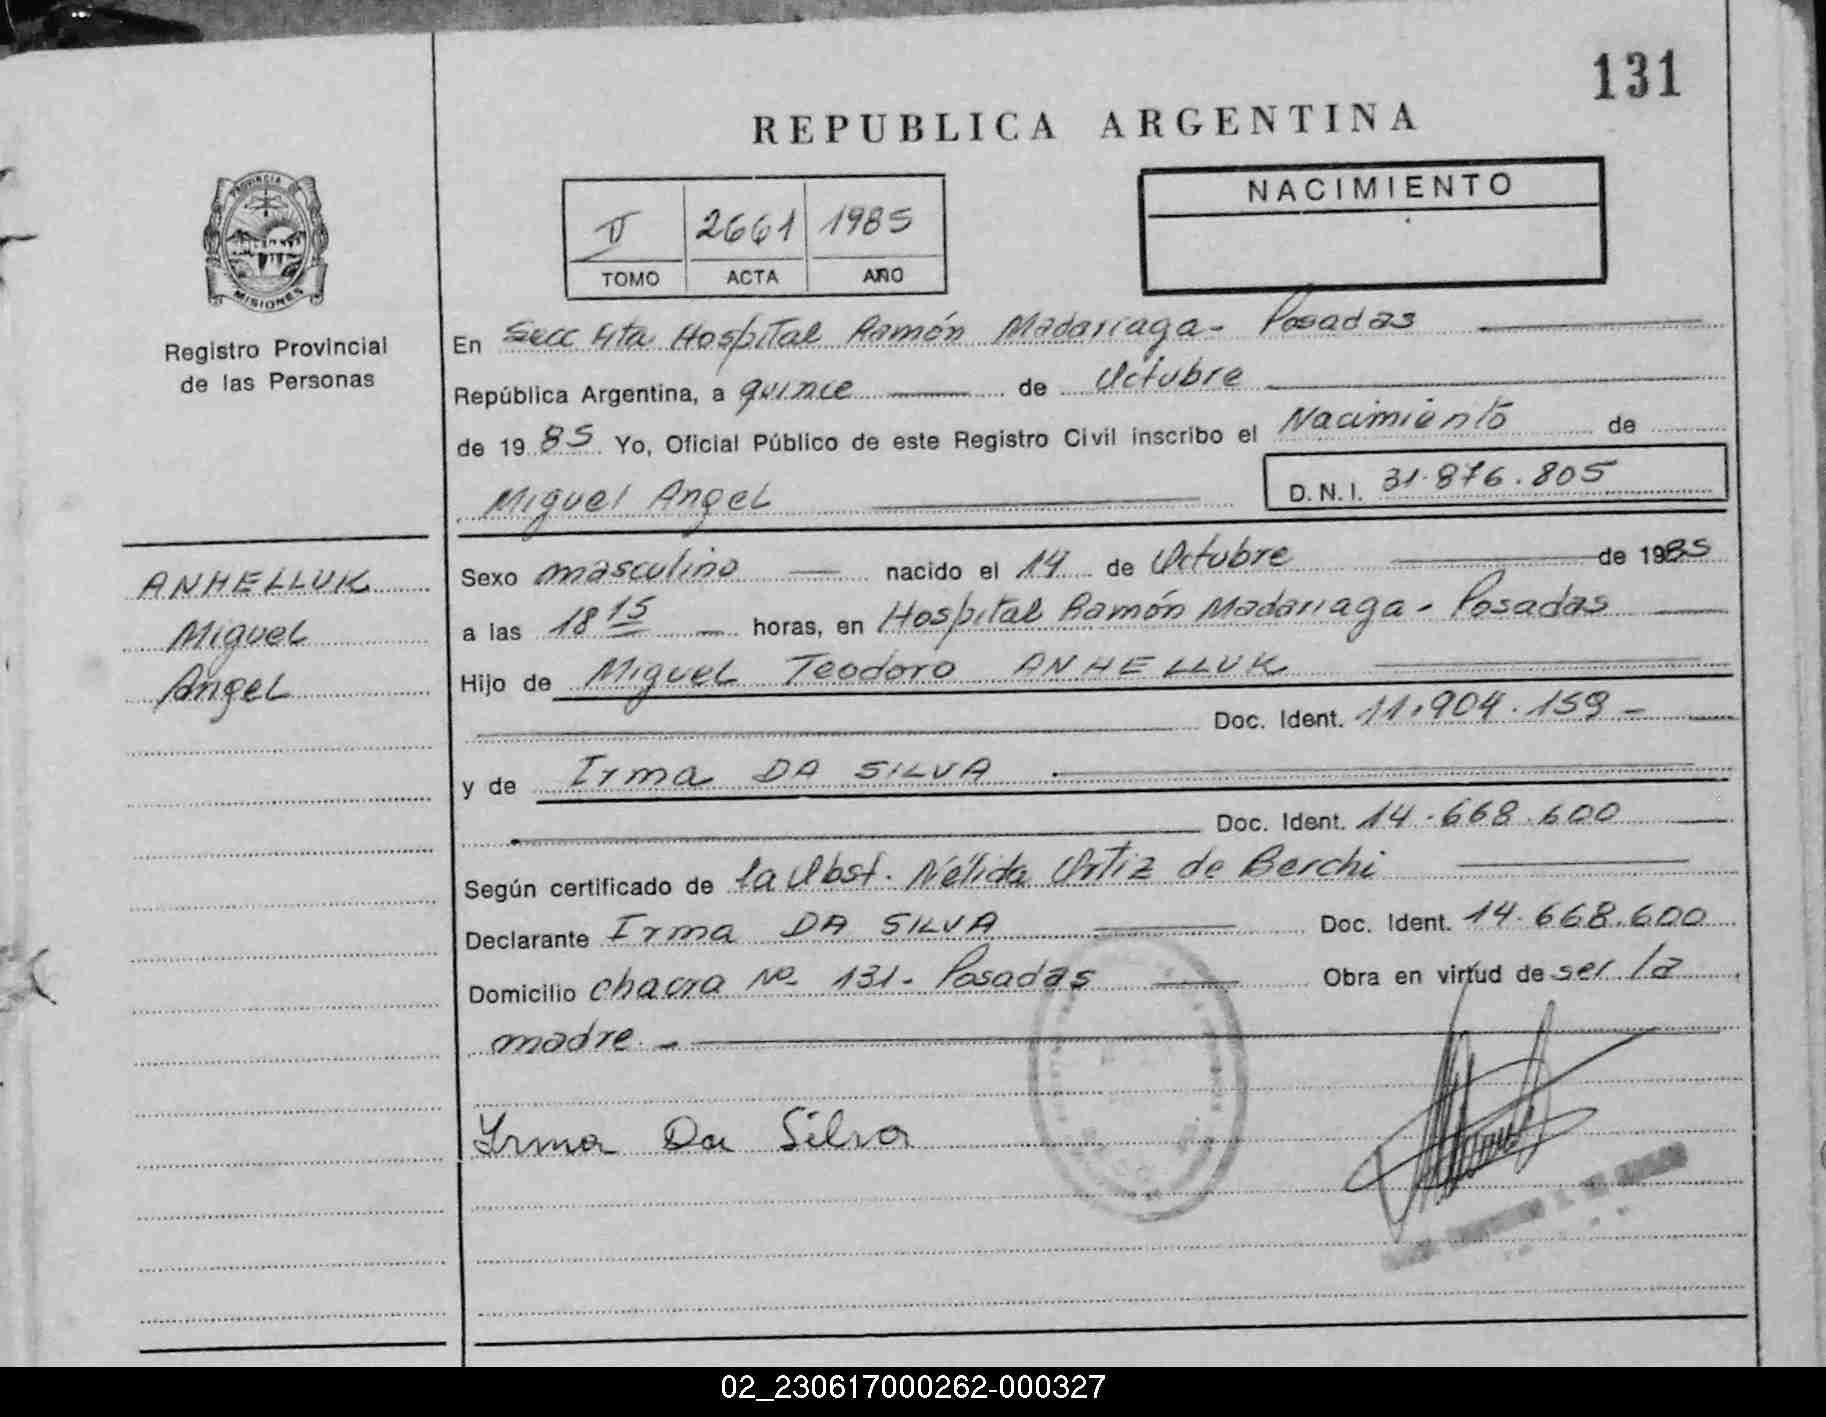 131
REPUBLICA ARGENTINA
PROVINCIA
MISIONES
Registro Provincial
de las Personas
V 2661 1985
TOMO ACTA AÑO
NACIMIENTO
En Secc 4ta Hospital Ramón Madariaga - Posadas
República Argentina, a quince de Octubre
de 1985 Yo, Oficial Público de este Registro Civil inscribo el Nacimiento de
Miguel Angel D.N.I. 31.876.805
ANHELLUK
Miguel
Angel
Sexo masculino nacido el 14 de Octubre de 1985
a las 18 15 horas, en Hospital Ramón Madariaga - Posadas
Hijo de Miguel Teodoro ANHELLUK
Doc. Ident. 11.904.159 -
y de Irma DA SILVA
Doc. Ident. 14.668.600
Según certificado de la Obst. Nélida Ortiz de Berchi
Declarante Irma DA SILVA Doc. Ident. 14.668.600
Domicilio chacra Nº 131 - Posadas Obra en virtud de ser la
madre. -
Irma Da Silva
02_230617000262-000327